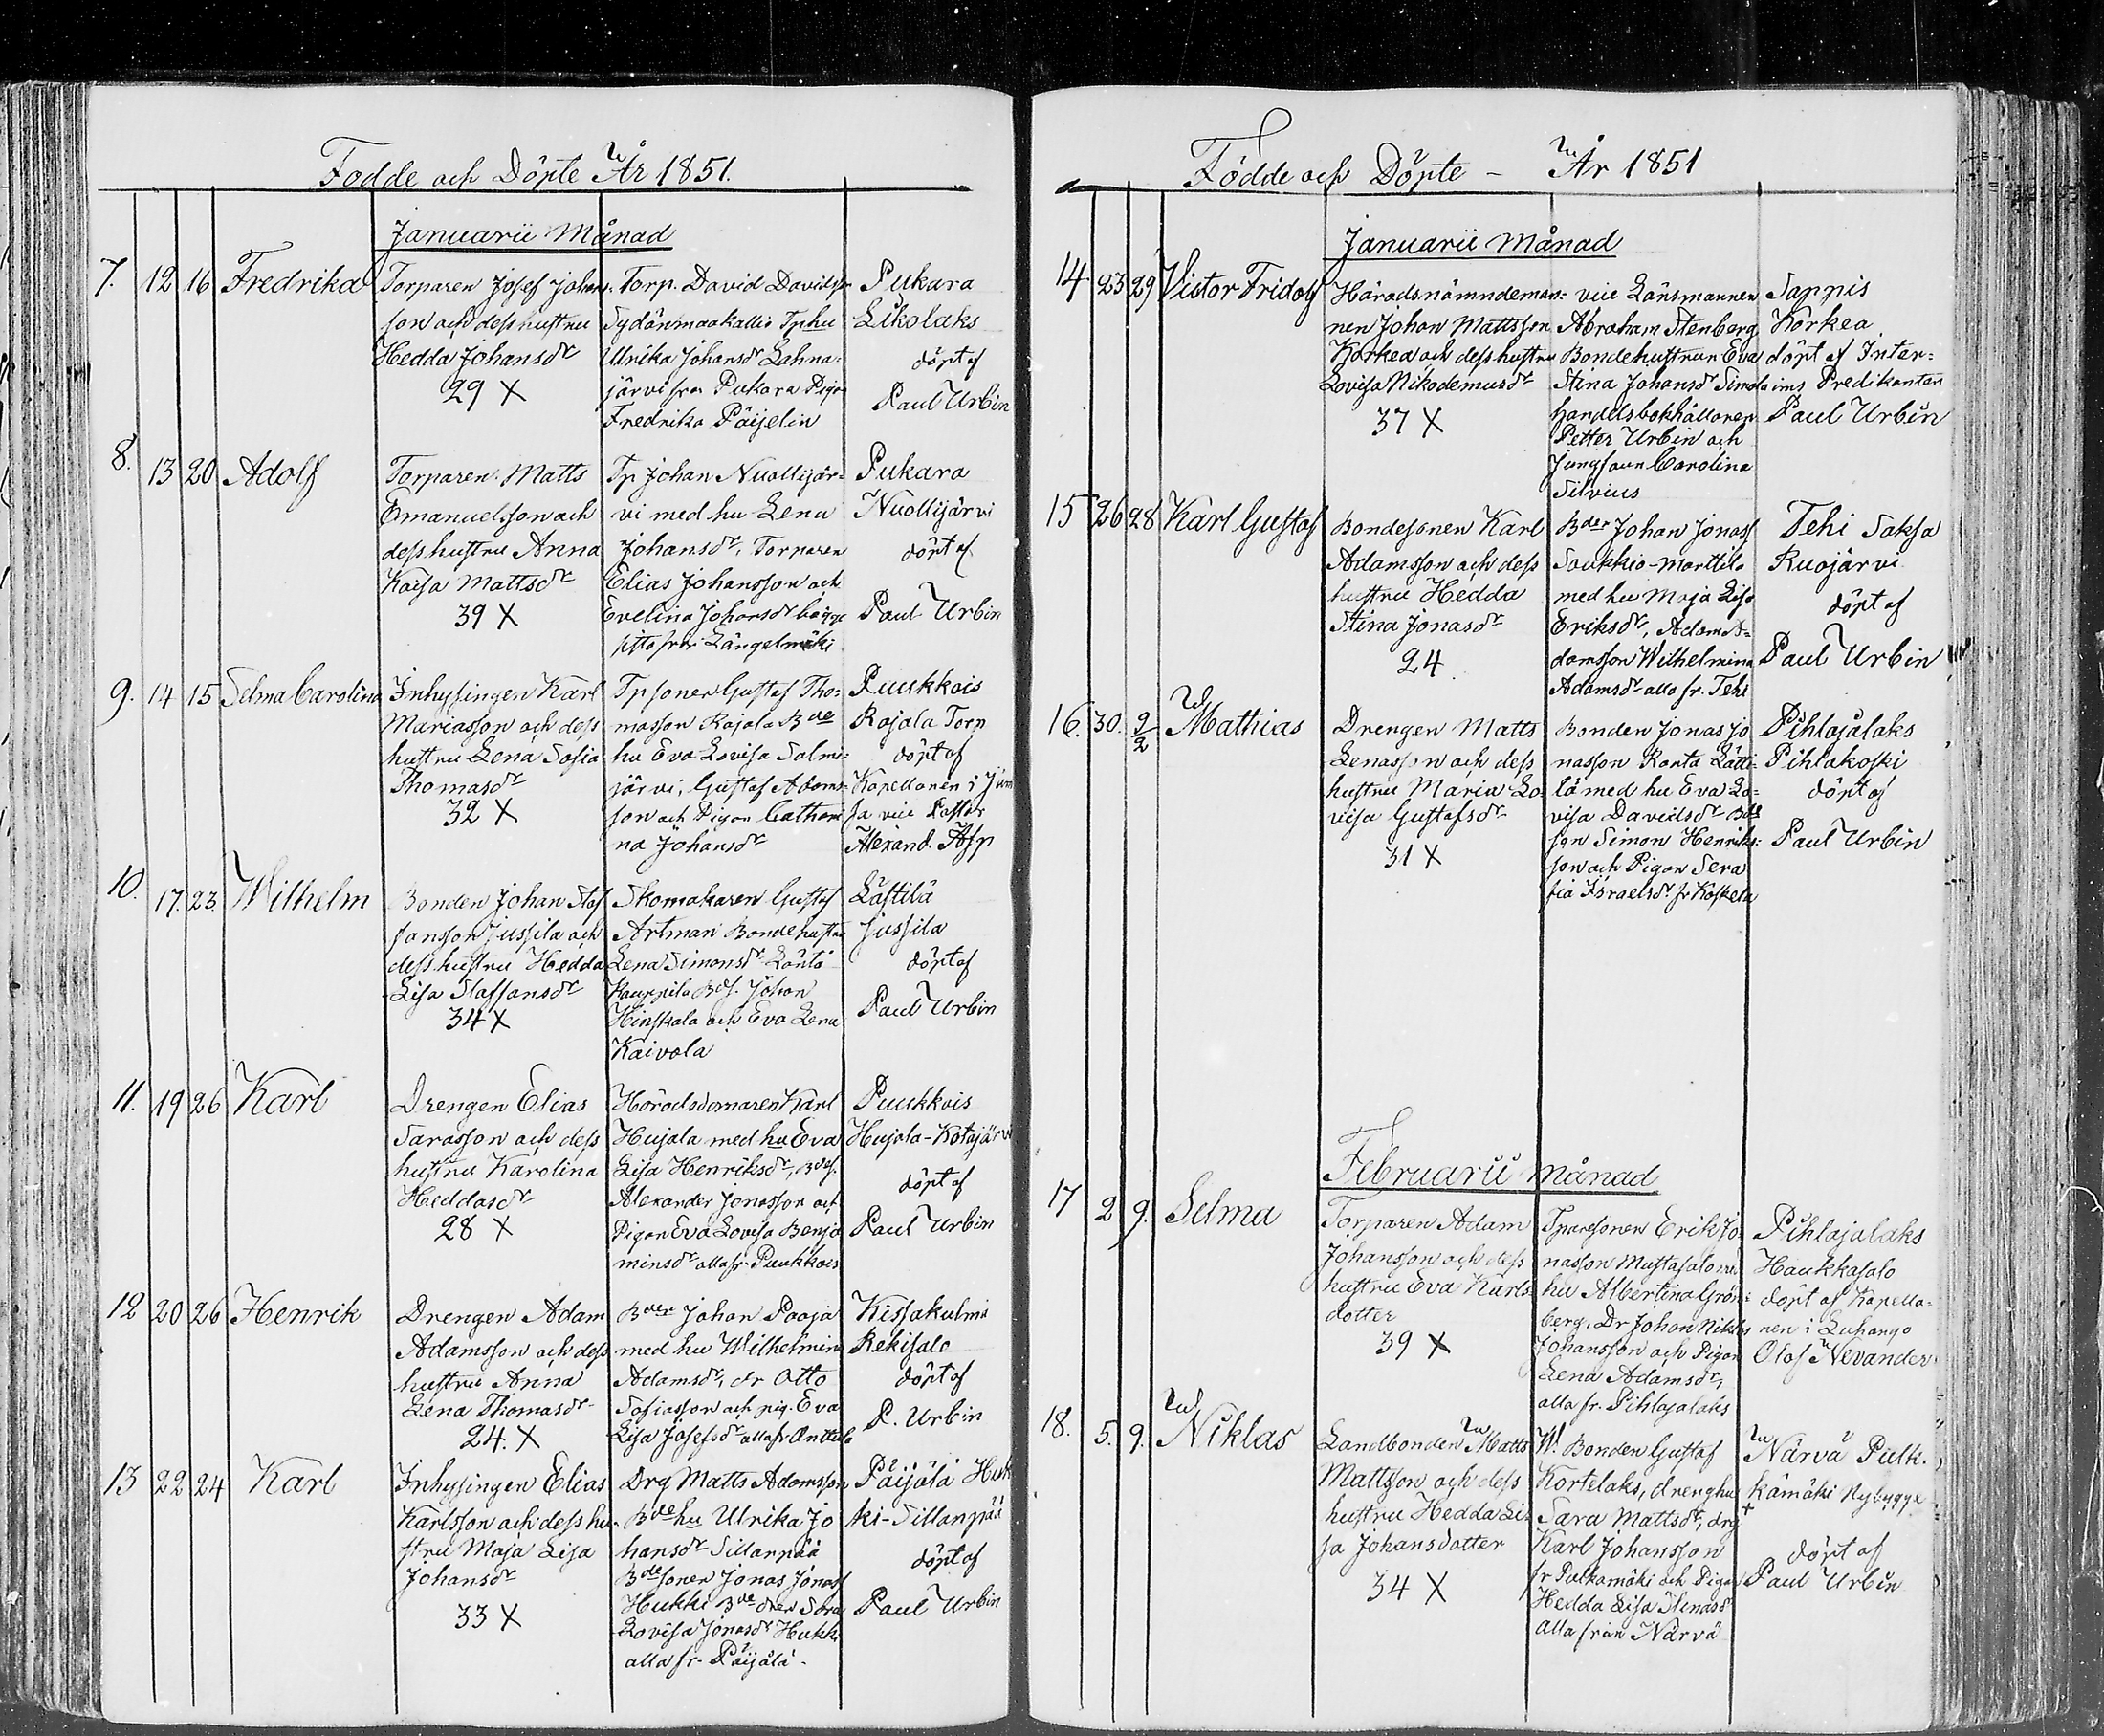 Fodde och Döpte År 1851.
Januarii Månad
7. 12 16 Fredrika
Torparen Josef Johans-
son och dess hustru
Hedda Johansdr
29 X
Torp. David Davidsn
Sydänmaakallio Tphu
Ulrika Johansdr Lahna-
järvi från Pukara Pigan
Fredrika Päijelin
Pukara
Likolaks
döpt af
Paul Urbin
8. 13 20 Adolf
Torparen Matts
Emanuelsson och
dess hustru Anna
Kaisa Mattsdr
39 X
Tp Johan Nuollijär-
vi med hu Lena
Johansdr, Torparen
Elias Johansson och
Evelina Johansdr begge
sitta från Längelmäki
Pukara
Nuollijärvi
döpt af
Paul Urbin
9. 14 15 Selma Carolina
Inhysingen Karl
Mariasson och dess
hustru Lena Sofia
Thomasdr
32 X
Tpsonen Gustaf Tho-
masson Rajala Bde
hu Eva Lovisa Salmi-
järvi, Gustaf Adams-
son och Pigan Cathari
na Johansdr
Puukkois
Rajala Torp
döpt af
Kapellanen i Jäm
sa vice Pastor
Alexand. Asp
10. 17. 23. Wilhelm
Bonden Johan Staf
fansson Jussila och
dess hustru Hedda
Lisa Staffansdr
34 X
Skomakaren Gustaf
Artman Bondehustru
Lena Simonsdr Länta
Kauppila Bds. Johan
Hinskala och Eva Lena
Kaivola
Lästilä
Jussila
döpt af
Paul Urbin
11. 19 26 Karl
Drengen Elias
Sarasson och dess
hustru Karolina
Heddasdr
28 X
Häradsdomaren Karl
Hujala med hu Eva
Lisa Henriksdr, Bdes.
Alexander Jonasson och
Pigan Eva Lovisa Benja
minsdr alla fr. Puukkois
Puukkois
Hujala-Kotajärvi
döpt af
Paul Urbin
12 20 26 Henrik
Drengen Adam
Adamsson och dess
hustru Anna
Lena Thomasdr
24. X
Bden Johan Paaja
med hu Wilhelmina
Adamsdr, dr Otto
Sofiasson och pig. Eva
Lisa Josefsdr alla fr Anttila
Kissakulma
Rekisalo
döpt af
P. Urbin
13 22 24 Karl
Inhysingen Elias
Karlsson och dess hu-
stru Maja Lisa
Johansdr
33 X
Drg Matts Adamsson
Bde hu Ulrika Jo
hansdr Sillanpää
Bdesonen Jonas Jonass
Hukki Bde dren Sara
Lovisa Jonasdr Hukki
alla fr. Päijälä.
Päijälä Huk
ki-Sillanpää
döpt af
Paul Urbin
Födde och Döpte - År 1851
Januarii Månad
14. 23 29 Victor Fridolf
Häradsnämndeman-
nen Johan Mattsson
Korkea och dess hustru
Lovisa Nikodemusdr
37 X
vice Länsmannen
Abraham Stenberg
Bondehustrun Eva
Stina Johansdr Simola
handelsbokhållaren
Petter Urbin och
Jungfrun Carolina
Silvius
Sappis
Korkea
döpt af Inter-
ims Predikanten
Paul Urbin
15 26 28 Karl Gustaf
Bondesonen Karl
Adamsson och dess
hustru Hedda
Stina Jonasdr
24
Bden Johan Jonass
Soukkio-Marttila
med hu Maja Lisa
Eriksdr, Adam A-
damsson Wilhelmina
Adamsdr alla fr. Tehi
Tehi Saksa
Ruojärvi
döpt af
Paul Urbin
16. 30. 9/2 Mathias
Drengen Matts
Lenasson och dess
hustru Maria Lo-
visa Gustafsdr
31 X
Bonden Jonas Jo
nasson Ranta Lätti-
lä med hu Eva Lo-
visa Davidsdr Bde
son Simon Henriks-
son och Pigan Sera
fia Israelsdr. fr Koskela
Pihlajalaks
Pihlakoski
döpt af
Paul Urbin
Februarii månad
17 2 9. Selma
Torparen Adam
Johansson och dess
hustru Eva Karls-
dotter
39 X
Tparesonen Erik Jo-
nasson Mustasalo m.
hu Albertina Grön-
berg, Dr Johan Niklas
Johansson och Pigan
Lena Adamsdr,
alla fr. Pihlajalaks
Pihlajalaks
Haukkasalo
döpt af Kapella-
nen i Luhango
Olof Nevander
18. 5. 9. Niklas
Landbonden Matts
Mattsson och dess
hustru Hedda Li-
sa Johansdotter
34 X
W. Bonden Gustaf
Kortelaks, drenghu
Sara Mattsdr, drg
Karl Johansson
fr Pulkamäki och Pigan
Hedda Lisa Stinasdr
alla från Närvä
Närvä Pulk-
kämäki Nybygge
döpt af
Paul Urbin